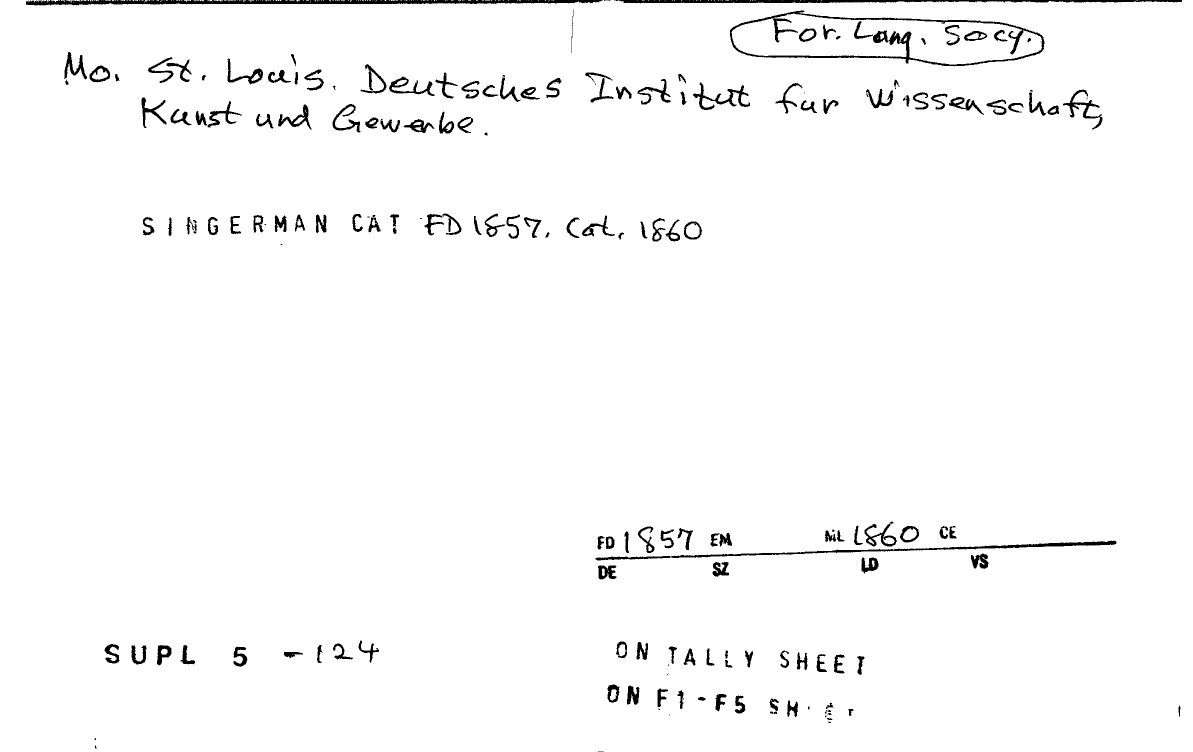 For. Lang. Socy.
Mo. St. Louis. Deutsches Institut fur Wissenschaft,
Kunst und Gewerbe.
SINGERMAN CAT FD 1857. Cat. 1860
FD 1857 EM ML 1860 CE
DE SZ LD VS
SUPL 5 -124
ON TALLY SHEET
ON F1-F5